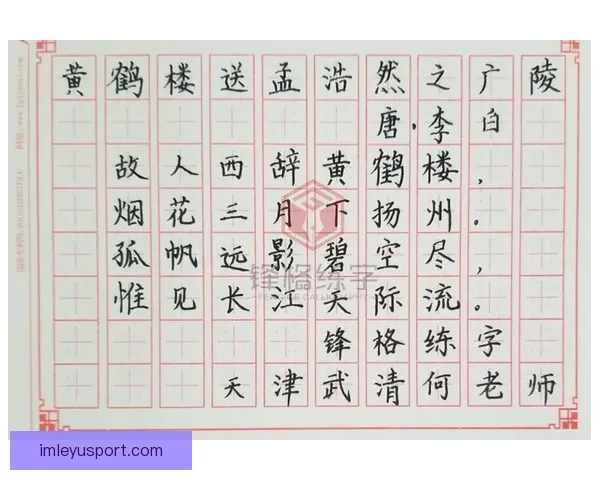 黄鹤楼送孟浩然之广陵
唐·李白
故人西辞黄鹤楼，
烟花三月下扬州。
孤帆远影碧空尽，
惟见长江天际流。
锋格练字
天津武清何老师
锋格练字
imleyusport.com